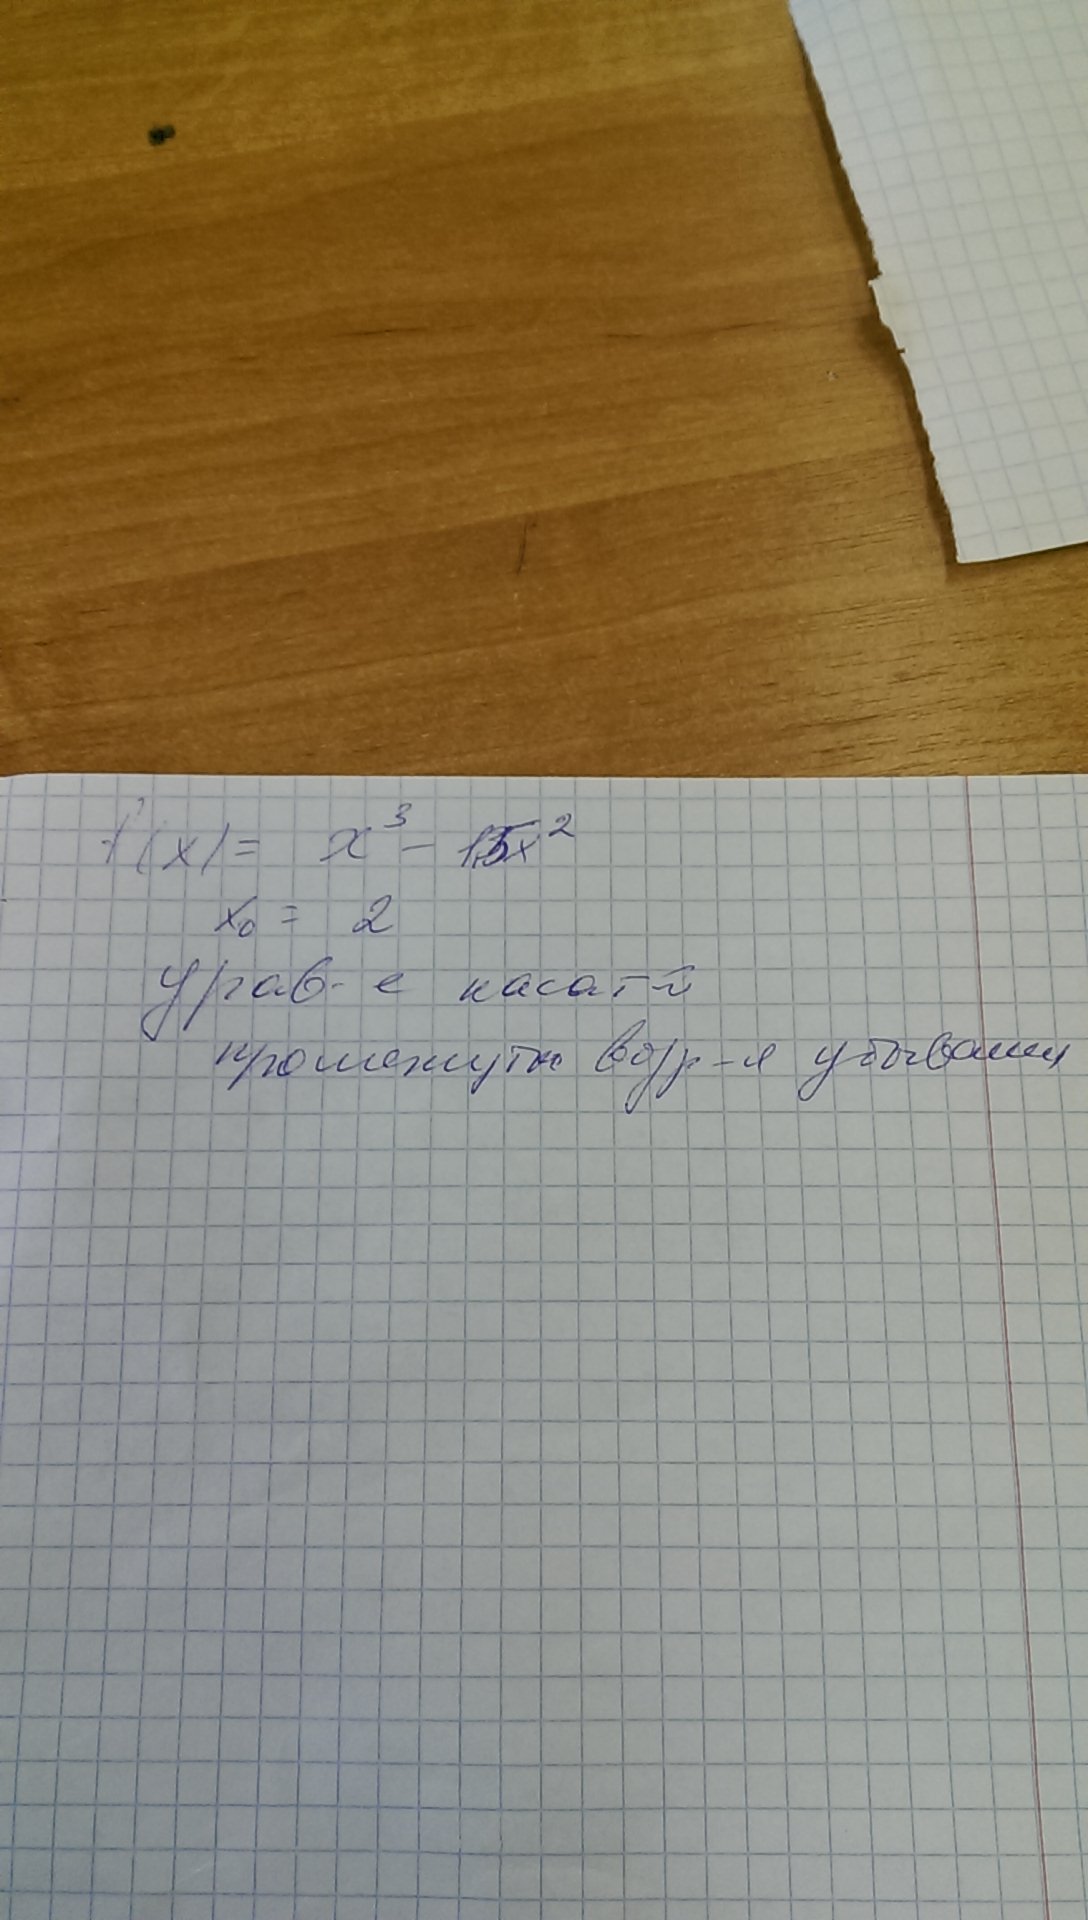 f(x) = x³ - 1,5x²
x₀ = 2
Урав-е касат-й
промежутки возр-я убывания